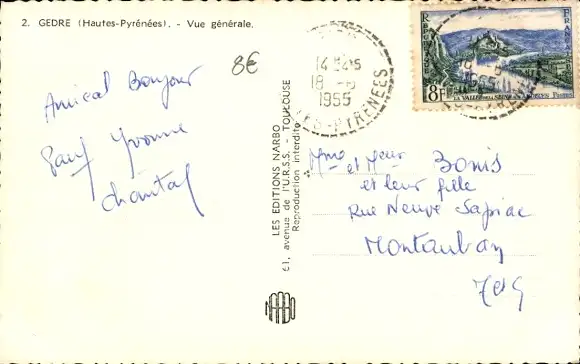 2. GEDRE (Hautes-Pyrénées). - Vue générale.
8€
Amical Bonjour
Yvonne
Chantal
LES EDITIONS NARBO
61, avenue de l'U.R.S.S. - TOULOUSE
Reproduction interdite
NARBO
14 H 45
18 - 6
1955
TES-PYRENEES
REPUBLIQUE
FRANÇAISE
8F
LA VALLEE DE LA SEINE AUX ANDELYS
POSTES
1955
Mme et Meur Bonis
et leur fille
Rue Neuve Sapiac
Montauban
T et G